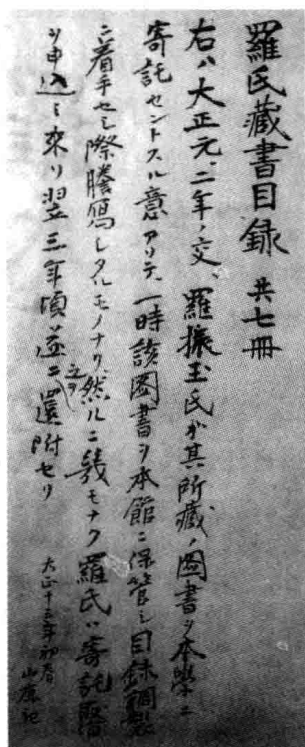 羅氏藏書目録 共七冊
右ハ大正元、二年ノ交 羅振玉氏ガ其所藏ノ圖書ヲ本學ニ
寄託セントスル意アリテ、一時該圖書ヲ本館ニ保管シ目錄調製
ニ着手セシ際謄寫シタルモノナリ、然ルニ幾モナク羅氏ハ寄託
ヲ申込ミ來リ翌三年頃並ニ之ヲ還附セリ
大正十三年初春
山鹿記